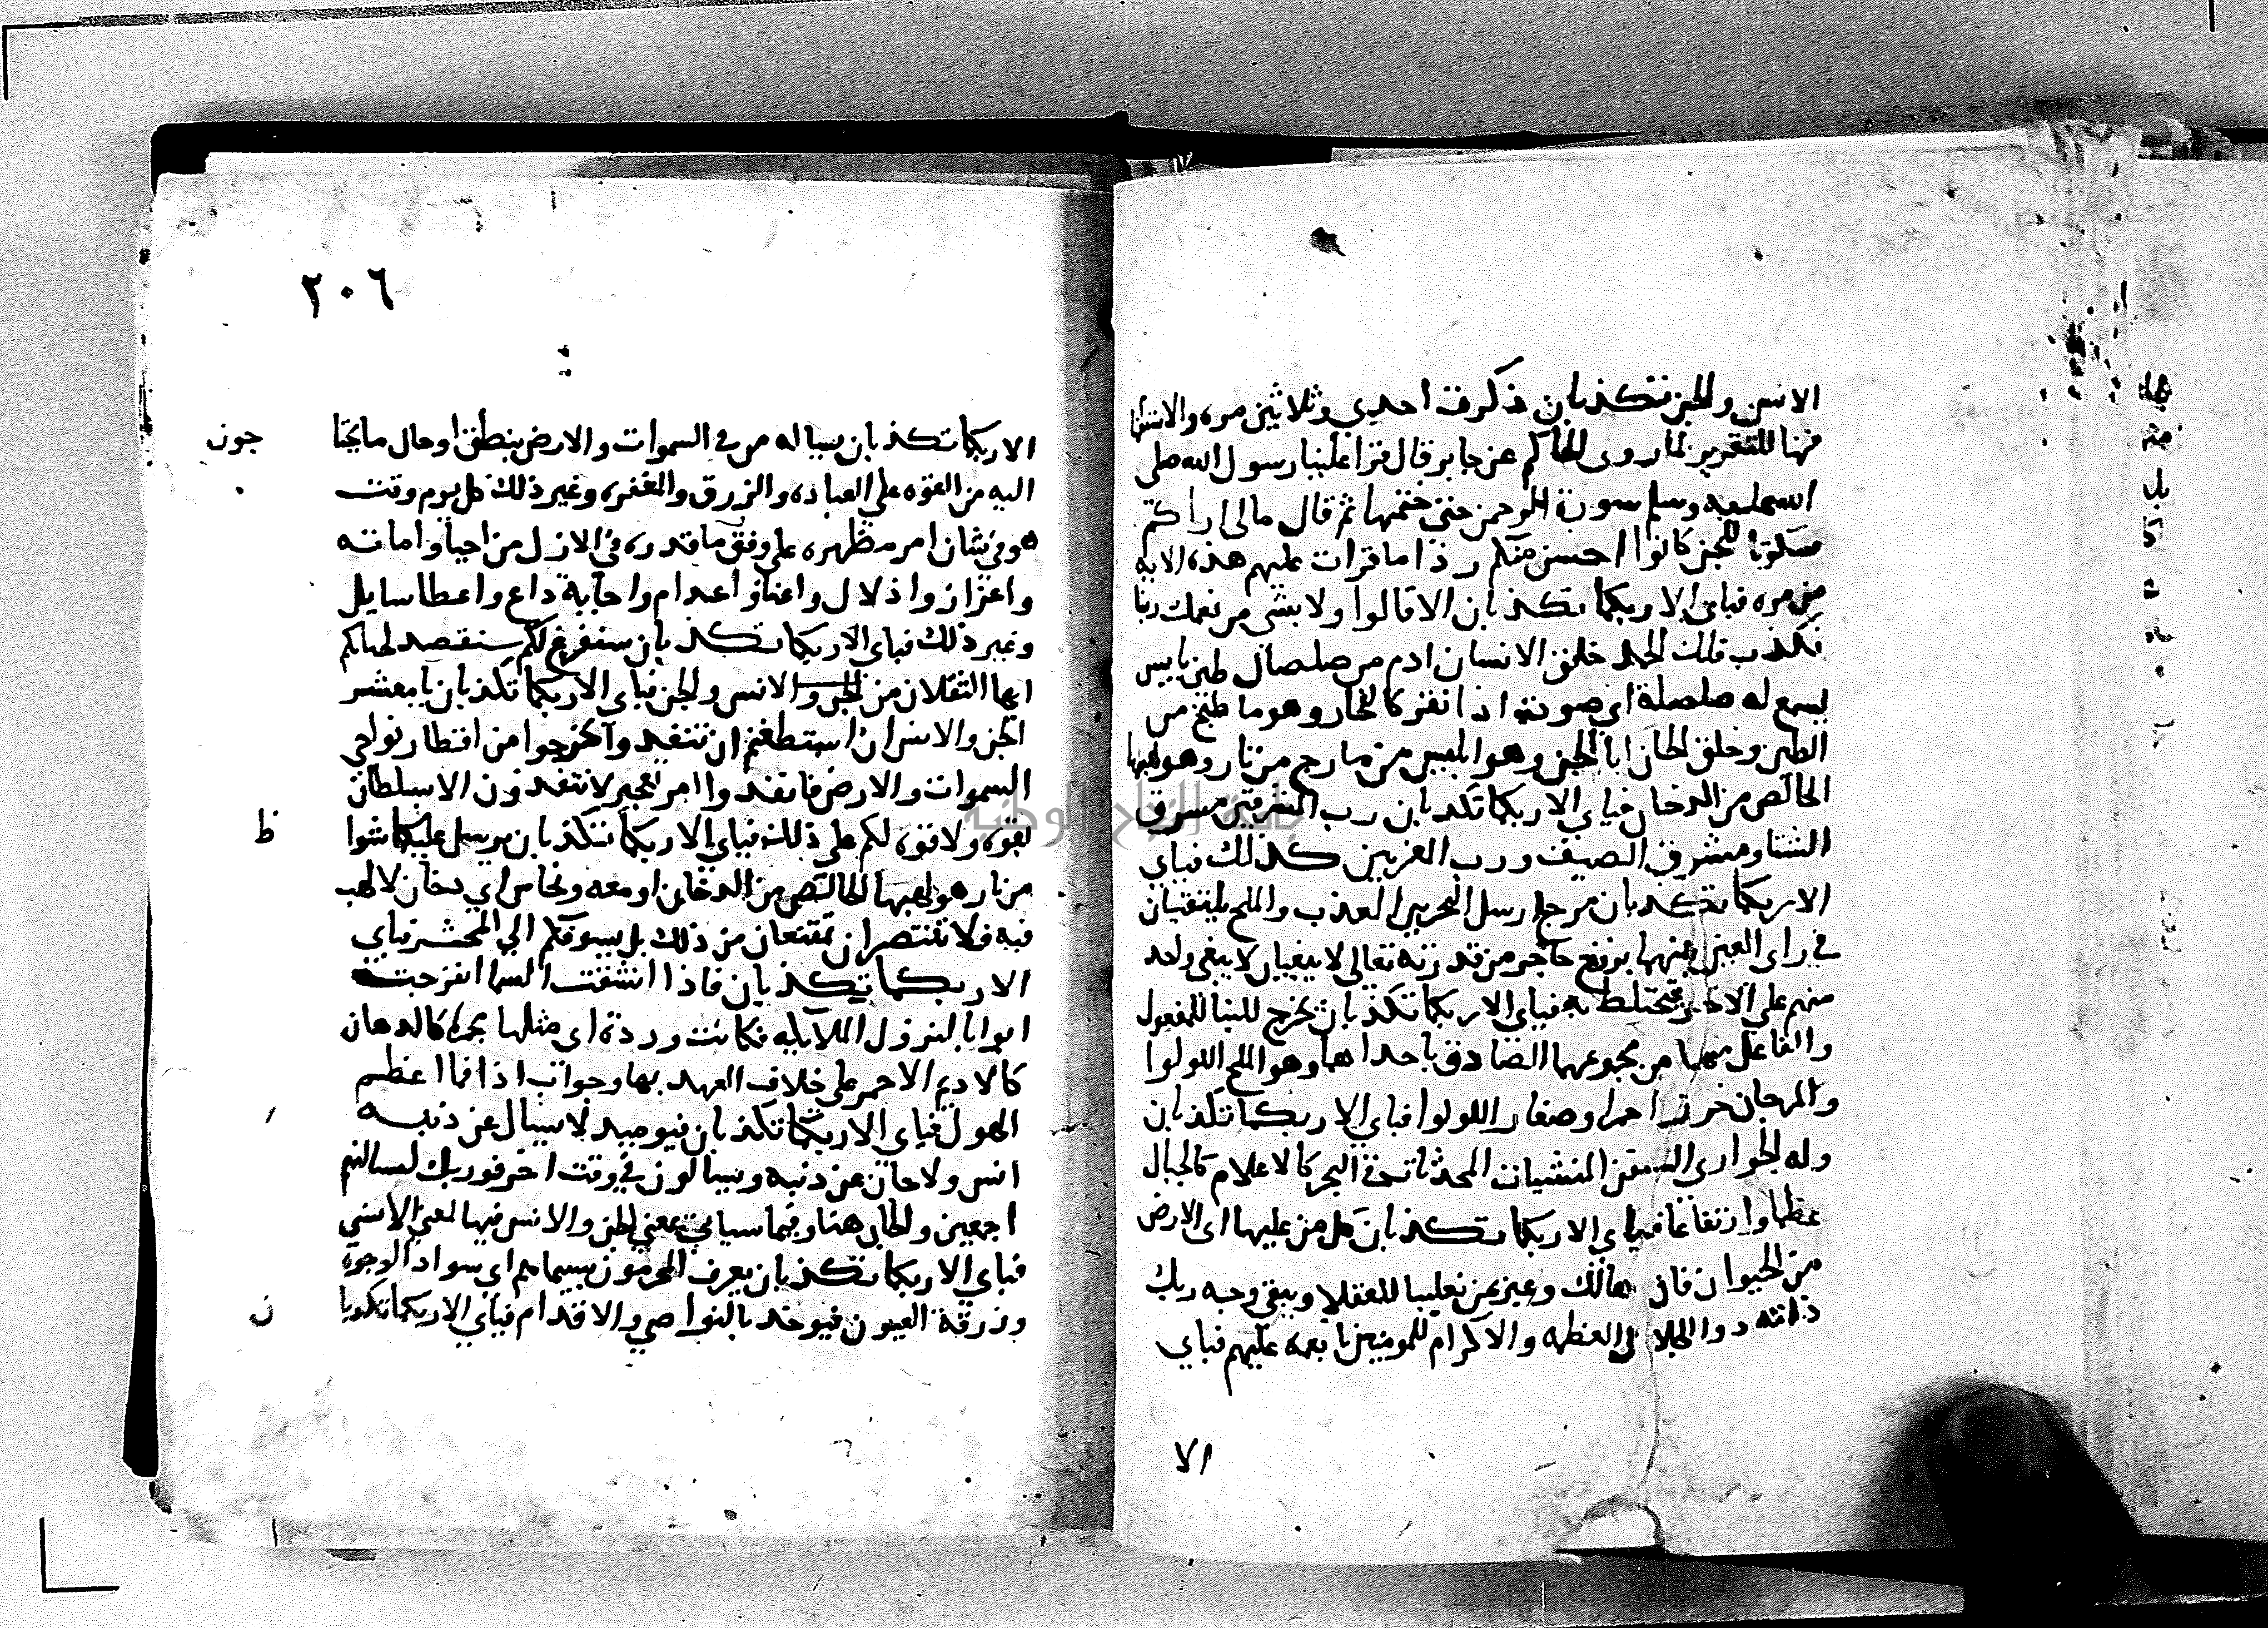 الانس والجن تكذبان ذكرت احدى وثلاثين مره والاستفها
فيها للتقرير لما روى الحاكم عن جابر قال قرا علينا رسول الله صلى
الله عليه وسلم سورة الرحمن حتى ختمها ثم قال مالى اراكم
سكوتا للجن كانوا احسن منكم ردا ما قرات عليهم هذه الايه
من مره فباى الا ربكما تكذبان الا قالوا ولا بشى من نعمك ربنا
نكذب فلك الحمد خلق الانسان ادم من صلصال طين يابس
يسمع له صلصلة اي صوت اذا نقر كالفخار وهو ما طبخ من
الطين وخلق الجان ابا الجن وهو ابليس من مارج من نار وهو لهبها
الخالص من الدخان فباي الا ربكما تكذبان رب المشرقين مشرق
الشتا ومشرق الصيف ورب المغربين كذلك فباي
الا ربكما تكذبان مرج ارسل البحرين العذب والملح يلتقيان
في راي العين بينهما برزخ حاجز من قدرته تعالى لا يبغيان لا يبغى واحد
منهم على الاخر فيختلط به فباي الا ربكما تكذبان يخرج للبنا للمفعول
والفاعل منهما من مجموعهما الصادق باحداهما وهو الملح اللولوا
والمرجان خرز احمرا وصغار اللولوا فباي الا ربكما تكذبان
وله الجوارى السفن المنشيات المحدثات في البحر كالاعلام كالجبال
عظما وارتفاعا فباي الا ربكما تكذبان كل من عليها اى الارض
من الحيوان فان هالك وعبر بمن تغليبا للعقلا ويبقى وجه ربك
ذاته ذوا الجلال العظمه والاكرام للمومنين بانعمه عليهم فباي
الا
٢٠٦
الا ربكما تكذبان يساله من في السموات والارض بنطق او حال ما يحتا جون
اليه من القوه على العباده والرزق والمغفره وغير ذلك كل يوم وقت
هو في شان امر مظهره على وفق ما قدره في الازل من احيا واماته
واعزاز واذلال واغنا واعدام واجابة داع واعطا سايل
وغير ذلك فباي الا ربكما تكذبان سنفرغ لكم سنقصد لحسابكم
ايها الثقلان من الجن والانس والجن فباى الا ربكما تكذبان يا معشر
الجن والانس ان استطعتم ان تنفذوا تخرجوا من اقطار نواحي
السموات والارض فانفذوا امر تعجيز لا تنفذون الا بسلطان
بقوه ولا قوه لكم على ذلك فباي الا ربكما تكذبان يرسل عليكما شوا ظ
من نار هو لهبها الخالص من الدخان او معه ونحاس اي دخان لا لهب
فيه فلا تنتصران تمتنعان من ذلك بل يسوقكم الى المحشر فباي
الا ربكما تكذبان فاذا انشقت السما انفرجت
ابوابا لنزول الملايكه فكانت وردة اى مثلها محمره كالدهان
كالاديم الاحمر على خلاف العهد بها وجواب اذا فما اعظم
الهول فباي الا ربكما تكذبان فيوميذ لا يسال عن ذنبه
انس ولا جان عن ذنبه ويسالون في وقت اخر فوربك لنسالنهم
اجمعين والجان هنا وفيما سياتي بمعنى الجن والانس فيها بمعنى الانسي
فباي الا ربكما تكذبان يعرف المجرمون بسيماهم اي سواد الوجوه
وزرقة العيون فيوخذ بالنواصي والاقدام فباي الا ربكما تكذبا ن